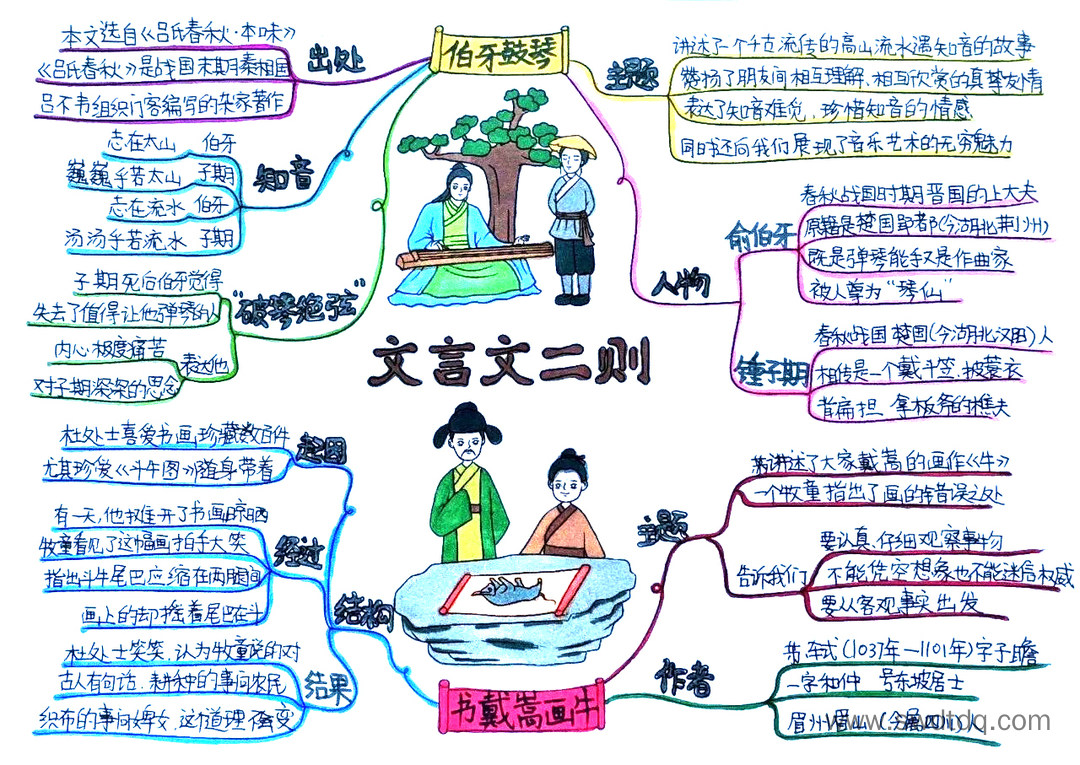 伯牙鼓琴
出处
本文选自《吕氏春秋·本味》
《吕氏春秋》是战国末期秦相国
吕不韦组织门客编写的杂家著作
知音
志在太山 伯牙
巍巍乎若太山 子期
志在流水 伯牙
汤汤乎若流水 子期
"破琴绝弦"
子期死后伯牙觉得
失去了值得让他弹琴的人
表达他
内心极度痛苦
对子期深深的思念
主题
讲述了一个千古流传的高山流水遇知音的故事
赞扬了朋友间相互理解、相互欣赏的真挚友情
表达了知音难觅,珍惜知音的情感
同时还向我们展现了音乐艺术的无穷魅力
人物
俞伯牙
春秋战国时期晋国的上大夫
原籍是楚国郢都(今湖北荆州)
既是弹琴能手又是作曲家
被人尊为"琴仙"
锺子期
春秋战国 楚国(今湖北汉阳)人
相传是一个戴斗笠、披蓑衣
背扁担、拿板斧的樵夫
文言文二则
书戴嵩画牛
结构
起因
杜处士喜爱书画,珍藏数百件
尤其珍爱《斗牛图》随身带着
经过
有一天,他摊开了书画晾晒
牧童看见了这幅画拍手大笑
指出斗牛尾巴应缩在两腿间
画上的却摇着尾巴在斗
结果
杜处士笑笑,认为牧童说的对
古人有句话:耕种的事问农民
织布的事问婢女,这个道理不会变
主题
讲述了大家戴嵩的画作《牛》
一个牧童指出了画的错误之处
告诉我们
要认真、仔细观察事物
不能凭空想象也不能迷信权威
要从客观事实出发
作者
苏轼(1037年—1101年)字子瞻
一字和仲 号东坡居士
眉州眉山(今属四川)人